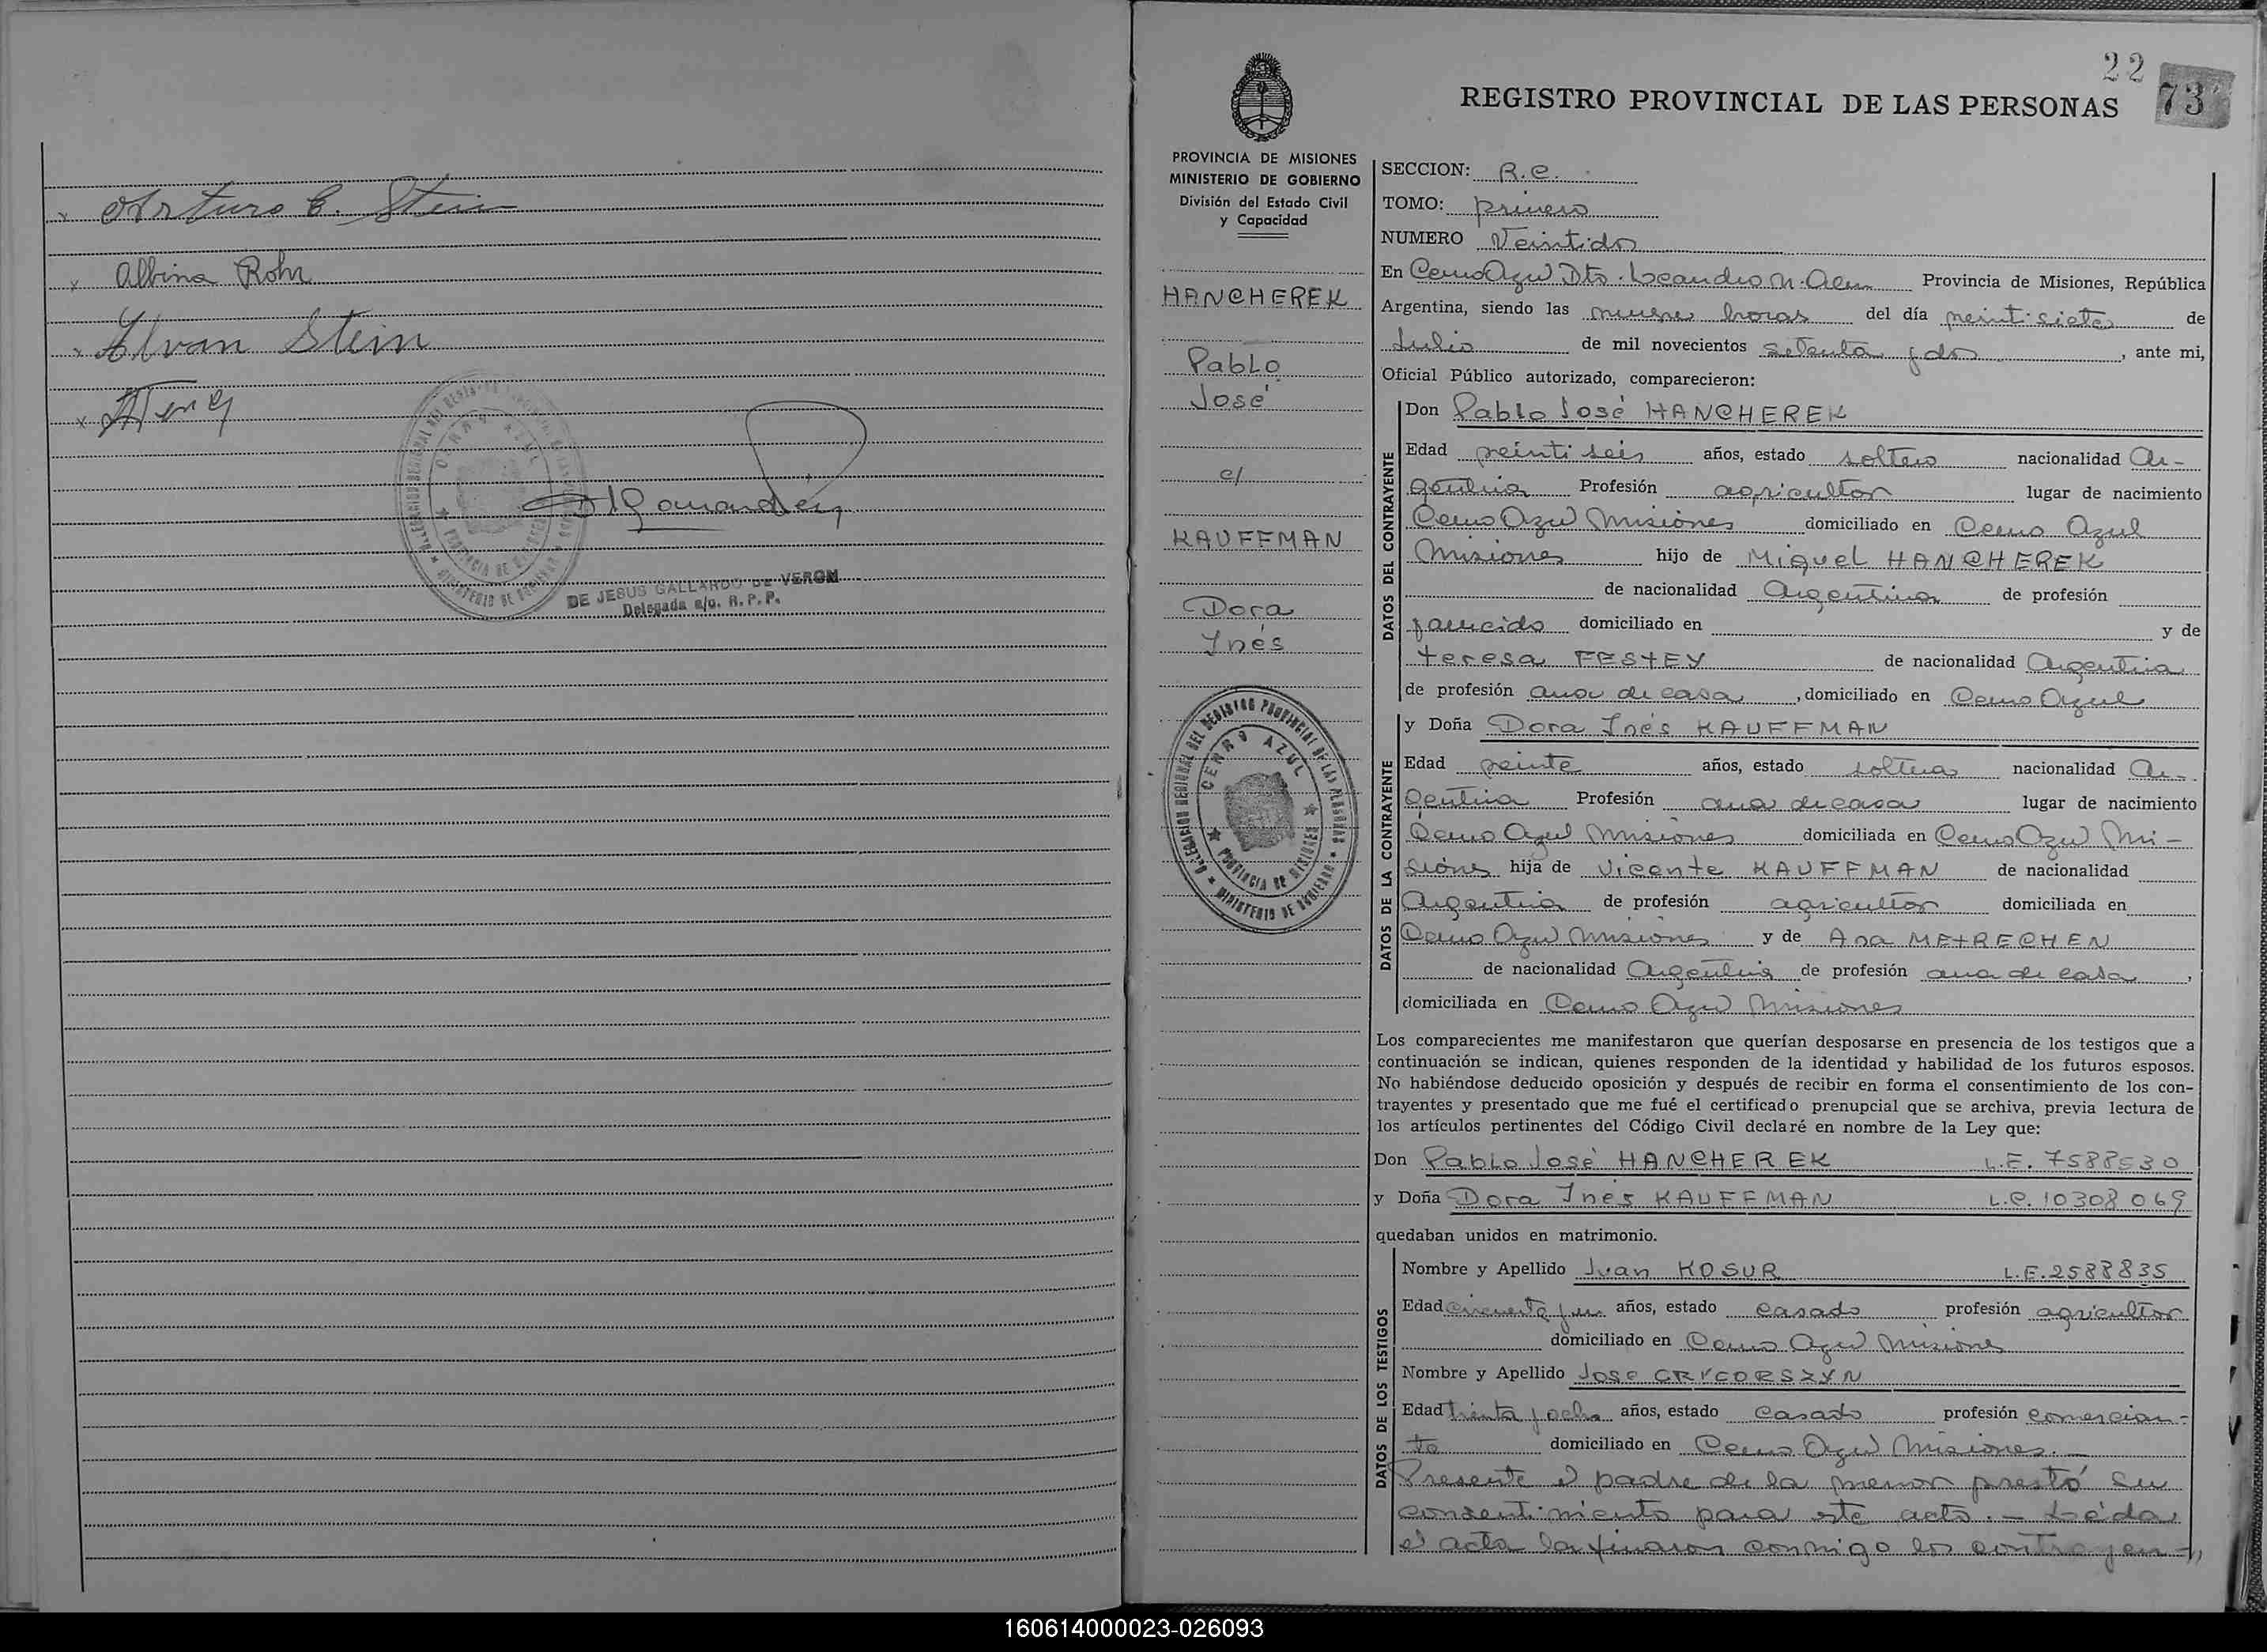 x Arturo C. Stein
x Albina Rohr
x Elvan Stein
x
DELEGACION REGIONAL DEL REGISTRO PROVINCIAL DE LAS PERSONAS
CERRO AZUL
PROVINCIA DE MISIONES
MINISTERIO DE GOBIERNO
DE JESUS GALLARDO DE VERON
Delegada a/c. R. P. P.
22
73
REGISTRO PROVINCIAL DE LAS PERSONAS
PROVINCIA DE MISIONES
MINISTERIO DE GOBIERNO
División del Estado Civil
y Capacidad
HANCHEREK
Pablo
José
c/
KAUFFMAN
Dora
Inés
DELEGACION REGIONAL DEL REGISTRO PROVINCIAL DE LAS PERSONAS
CERRO AZUL
PROVINCIA DE MISIONES
MINISTERIO DE GOBIERNO
SECCION: R.C.
TOMO: primero
NUMERO Veintidos
En Cerro Azul Dto. Leandro N. Alem Provincia de Misiones, República
Argentina, siendo las nueve horas del día veintisiete de
Julio de mil novecientos setenta y dos, ante mi,
Oficial Público autorizado, comparecieron:
DATOS DEL CONTRAYENTE
Don Pablo José HANCHEREK
Edad veintiseis años, estado soltero nacionalidad Ar-
gentina Profesión agricultor lugar de nacimiento
Cerro Azul Misiones domiciliado en Cerro Azul
Misiones hijo de Miguel HANCHEREK
de nacionalidad Argentina de profesión
fallecido domiciliado en y de
Teresa FESTEY de nacionalidad Argentina
de profesión ama de casa, domiciliado en Cerro Azul
DATOS DE LA CONTRAYENTE
y Doña Dora Inés KAUFFMAN
Edad veinte años, estado soltera nacionalidad Ar-
gentina Profesión ama de casa lugar de nacimiento
Cerro Azul Misiones domiciliada en Cerro Azul Mi-
siones hija de Vicente KAUFFMAN de nacionalidad
Argentina de profesión agricultor domiciliada en
Cerro Azul Misiones y de Ana METRECHEN
de nacionalidad Argentina de profesión ama de casa,
domiciliada en Cerro Azul Misiones
Los comparecientes me manifestaron que querían desposarse en presencia de los testigos que a
continuación se indican, quienes responden de la identidad y habilidad de los futuros esposos.
No habiéndose deducido oposición y después de recibir en forma el consentimiento de los con-
trayentes y presentado que me fué el certificado prenupcial que se archiva, previa lectura de
los artículos pertinentes del Código Civil declaré en nombre de la Ley que:
Don Pablo José HANCHEREK L.E. 7588530
y Doña Dora Inés KAUFFMAN L.C. 10308069
quedaban unidos en matrimonio.
DATOS DE LOS TESTIGOS
Nombre y Apellido Juan KOSUR L.E. 2588835
Edad cincuenta y un años, estado casado profesión agricultor
domiciliado en Cerro Azul Misiones
Nombre y Apellido Jose GRYGORSZYN
Edad treinta y ocho años, estado casado profesión comercian-
te domiciliado en Cerro Azul Misiones.
Presente el padre de la menor prestó su
consentimiento para este acto.- Leída
el acta la firmaron conmigo los contrayen-
160614000023-026093